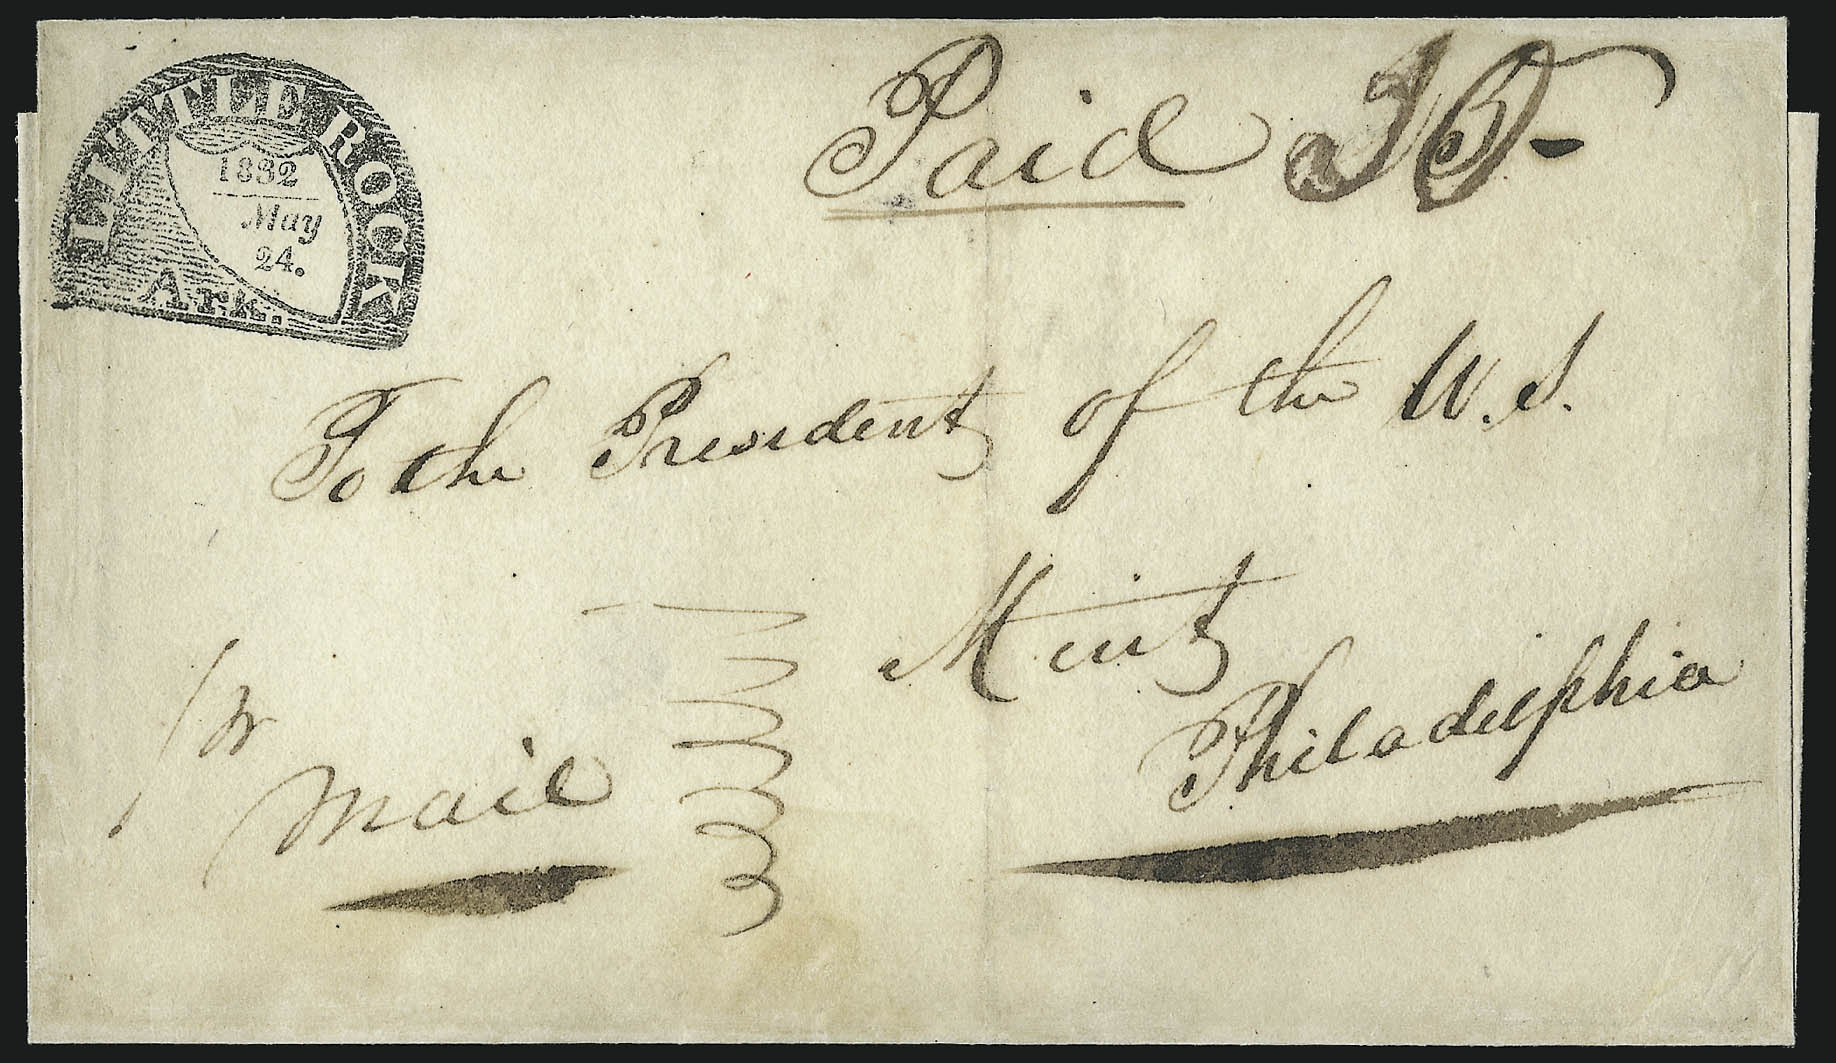 LITTLE ROCK
1832
May
24.
Ark.
Paid 25-
To the President of the U.S.
Mint
Philadelphia
Mail